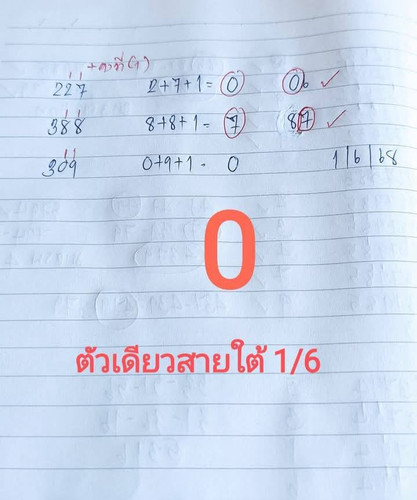 +คงที่(1)
227 2+7+1= 0 06 ✓
388 8+8+1= 7 87 ✓
309 0+9+1= 0 1/6/68
0
ตัวเดียวสายใต้ 1/6